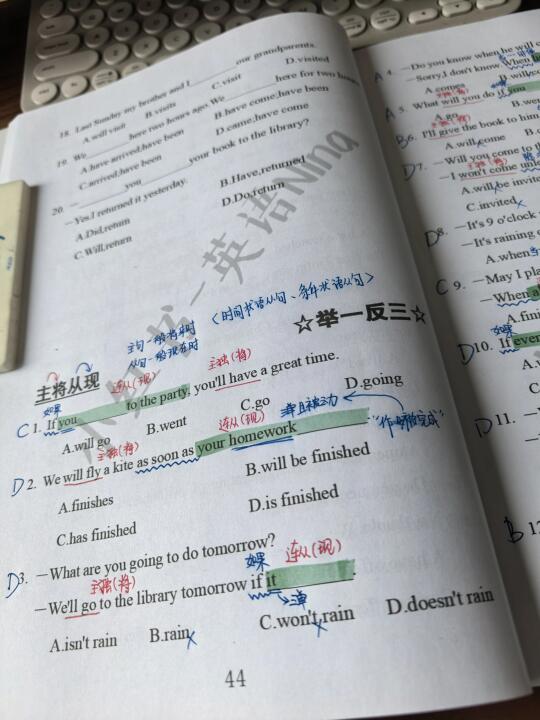 18. Last Sunday my brother and I ______ our grandparents.
A.will visit B.visits C.visit D.visited
19. We ______ here two hours ago. We ______ here for two hours.
A.have arrived,have been B.have come,have been
C.arrived,have been D.came,have come
20. — ______ you ______ your book to the library?
—Yes.I returned it yesterday.
A.Did,return B.Have,returned
C.Will,return D.Do,return
小红书-英语Nina
<时间状语从句、条件状语从句>
主句一般将来时
从句一般现在时
☆举一反三☆
主将从现
如果 连从(现) 主独(将)
C 1. If you ______ to the party, you'll have a great time.
A.will go B.went C.go D.going
主独(将) 连从(现) 单且被动 "作业被完成"
D 2. We will fly a kite as soon as your homework ______
A.finishes B.will be finished
C.has finished D.is finished
D 3. —What are you going to do tomorrow?
主独(将) 如果 连从(现)
—We'll go to the library tomorrow if it ______.
→三单
A.isn't rain B.rain C.won't rain D.doesn't rain
44
A 4. —Do you know when he will c
—Sorry,I don't know. When
A.comes B.will c
A 5. What will you do if you
A.go B.we
B 6. I'll give the book to him
A.will come
D 7. —Will you come to th
—I won't come un
A.will be invite
C.invited
D 8. —It's 9 o'clock
—It's raining
A.when
C 9. —May I pla
—When
A.fini
C.fin
如果
D 10. If ever
A.
D 11. —
B 12